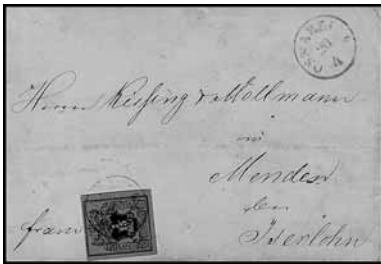 Herrn Kissing & Möllmann
in
Menden
bei
Iserlohn
franco